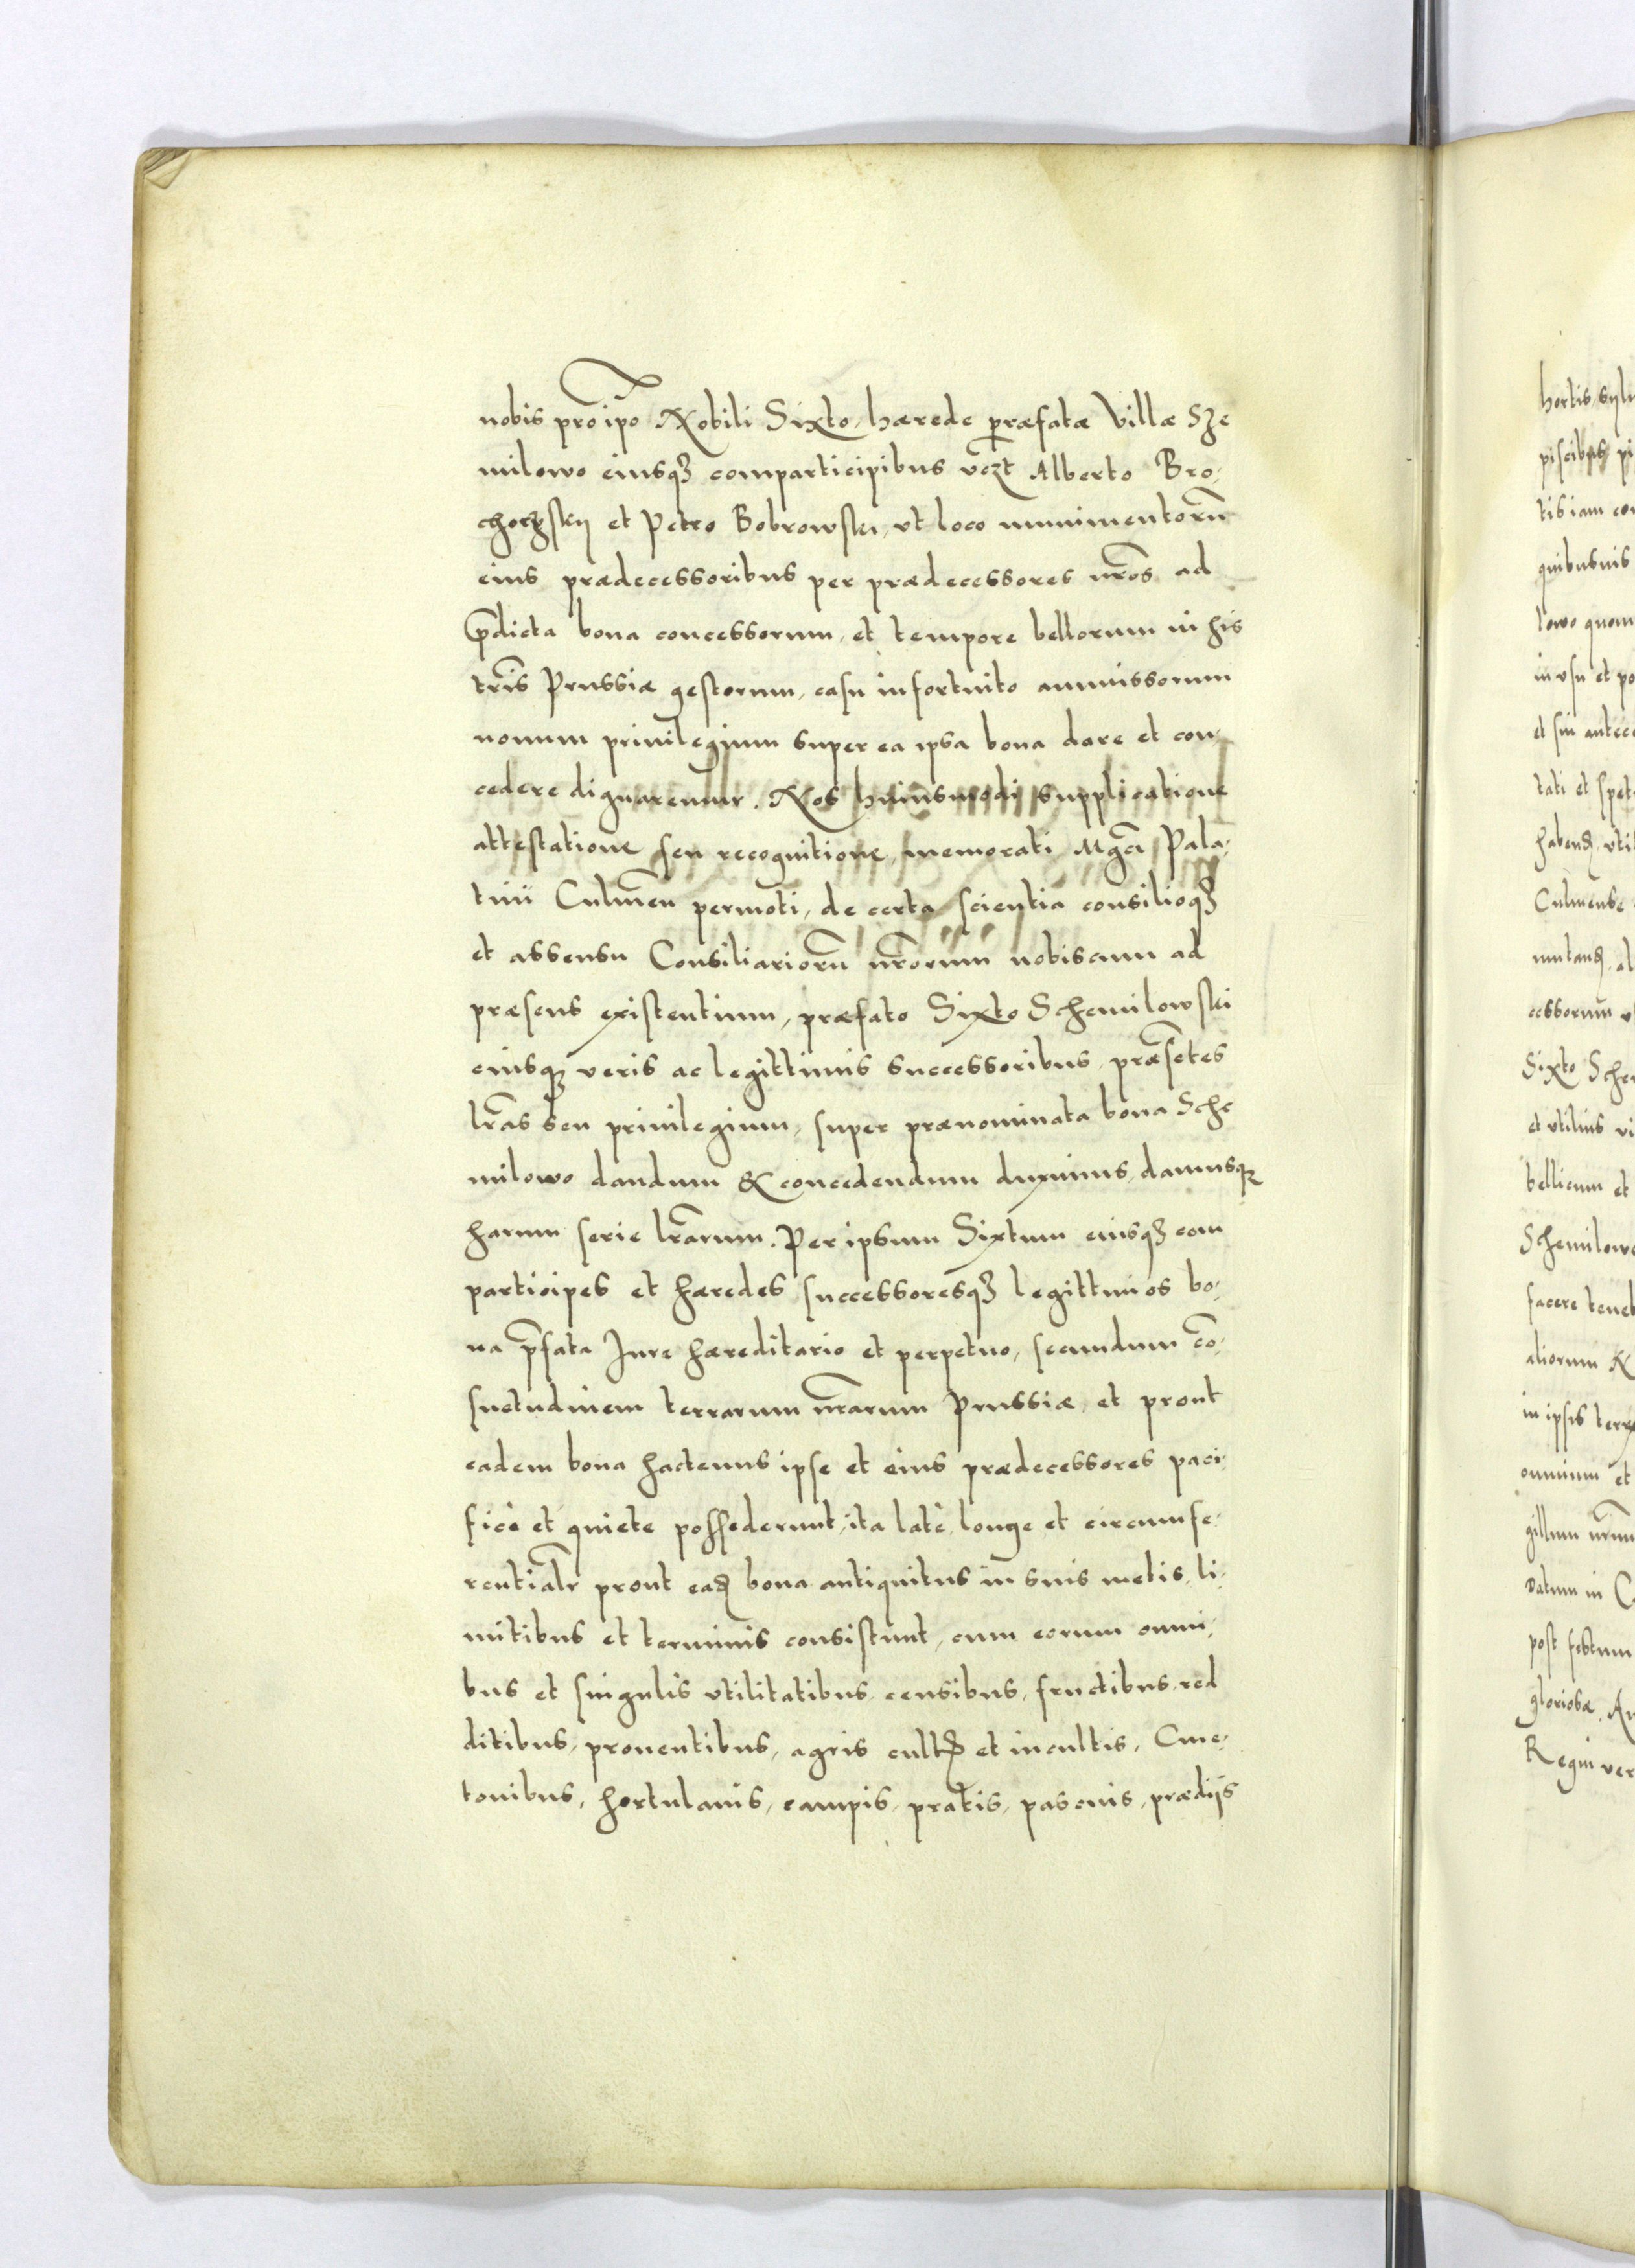 nobis pro ip̃o Nobili Sixto, hærede præfatæ Villæ Sze
milowo eiusq₃ comparticipibus vczt Alberto Bro-
choczskij et Petro Bobrowski, vt loco munimentorũ
eius prædecessoribus per prædecessores nr̃os ad
p̃dicta bona concessorum, et tempore bellorum in his
tr̃is Prussiæ gestorum, casu infortuito ammissorum
nouum priuilegium super ea ipsa bona dare et con-
cedere dignaremur. Nos huiusmodi supplicatione
attestatione seu recognitione, memorati Mgci Pala-
tini Culmeñ permoti, de certa scientia consilioq₃
et assensu Consiliariorũ nr̃orum nobiscum ad
præsens existentium, præfato Sixto Schemilowski
eiusq₃ veris ac legittimis successoribus, præsẽtes
lr̃as seu priuilegium, super prænominata bona Sche
milowo dandum & concedendum duximus, damusq₃
harum serie lr̃arum. Per ipsum Sixtum eiusq₃ com
participes et hæredes successoresq₃ legittimos bo-
na p̃fata Jure hæreditario et perpetuo, secundum cõ-
suetudinem terrarum nr̃arum Prussiæ, et prout
eadem bona hactenus ipse et eius prædecessores paci-
ficè et quiete possederunt, ita latè, longe et circumfe-
rentialr̃ prout eadꝫ bona antiquitus in suis metis, li-
mitibus et terminis consistunt, cum eorum omni-
bus et singulis vtilitatibus, censibus, fructibus, red
ditibus, prouentibus, agris cultꝭ et incultis, Cme-
tonibus, hortulanis, campis, pratis, pascuis, prædijs
hortis, sylu
piscibus pi
tis iam con
quibusuis
lowo quom
in vsu et po
et sui antece
tati et spet
habendꝫ, vti
Culmense
mutandꝫ, al
cessorum v
Sixto Sche
et vtilius vi
bellicum et
Schemilowo
facere teneb
aliorum N
in ipsis terr
omnium et
gillum nr̃um
Datum in C
post festum
gloriosæ. An
Regni ver